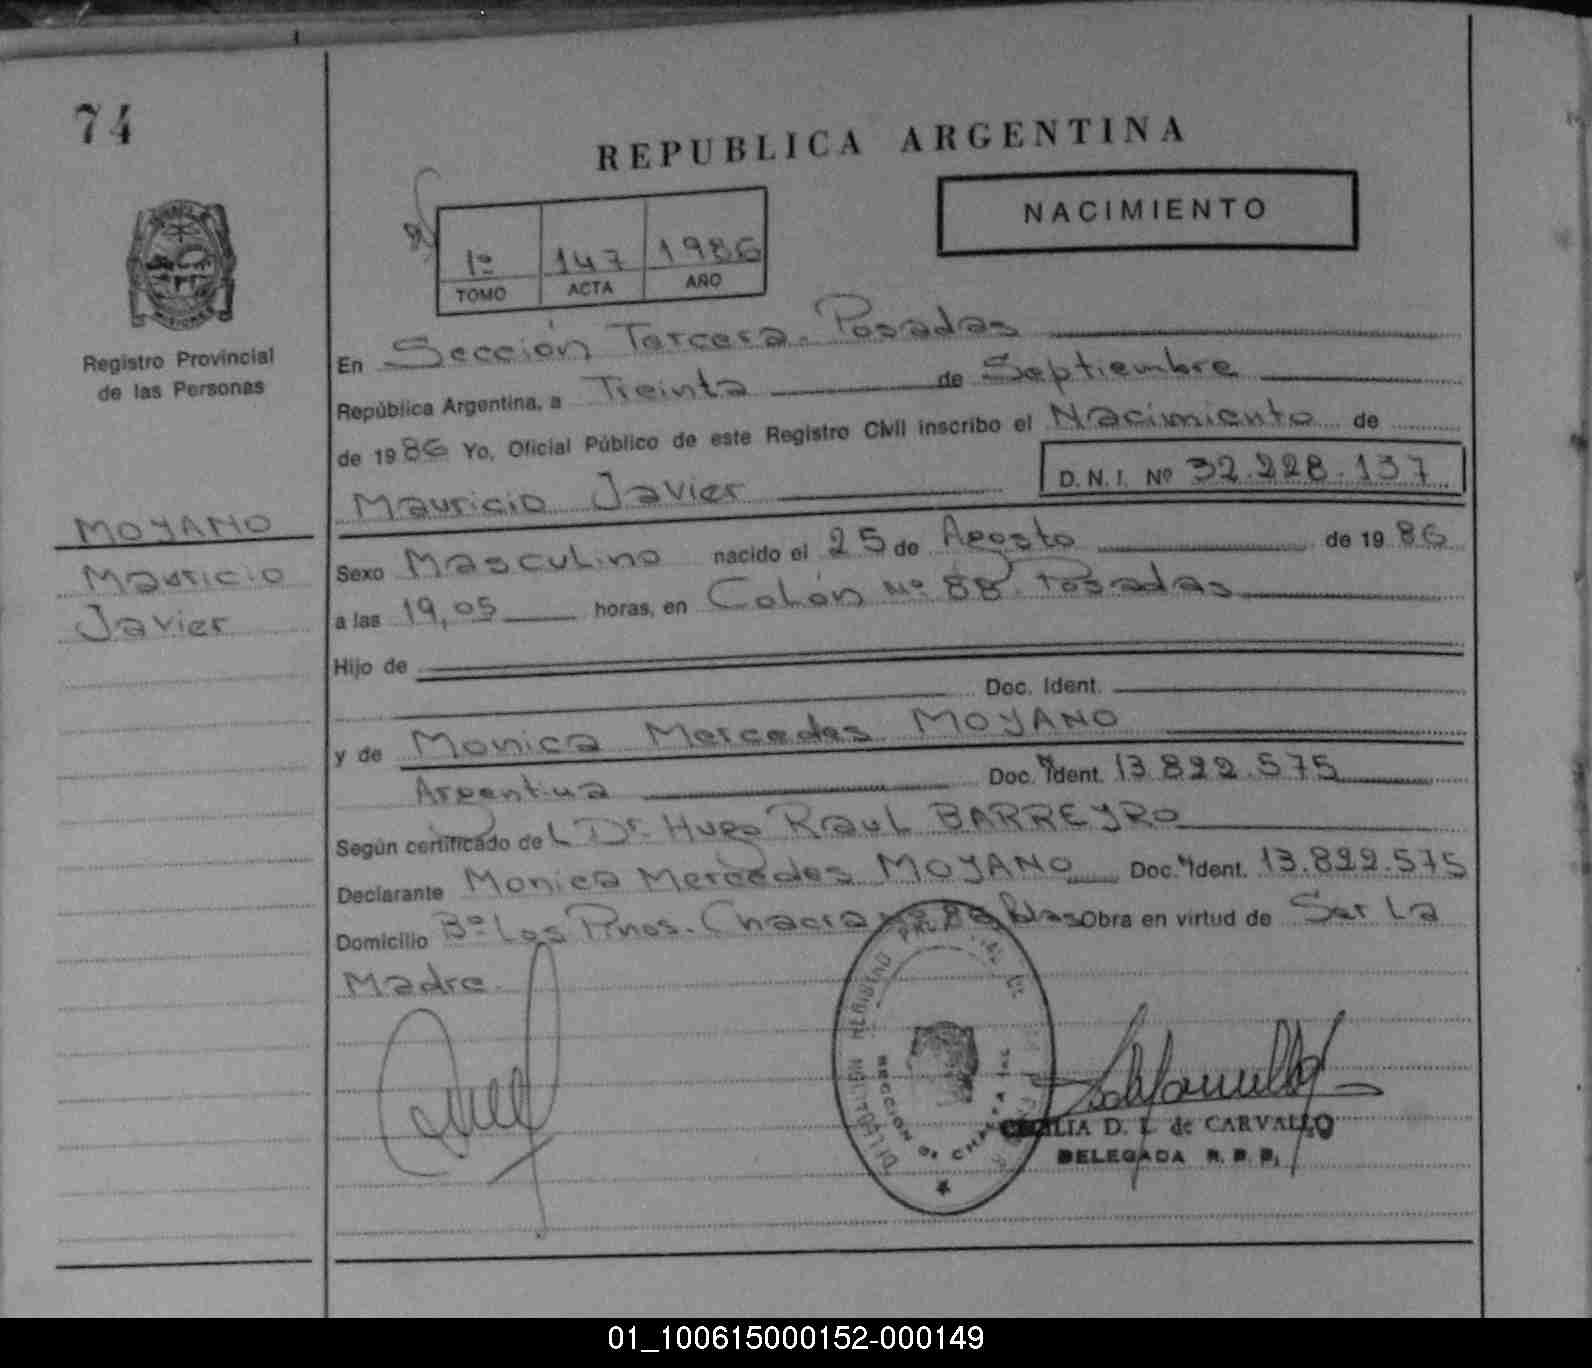 74
REPUBLICA ARGENTINA
NACIMIENTO
1º 147 1986
TOMO ACTA AÑO
MISIONES
Registro Provincial
de las Personas
En Sección Tercera. Posadas
República Argentina, a Treinta de Septiembre
de 1986 Yo, Oficial Público de este Registro Civil inscribo el Nacimiento de
Mauricio Javier D.N.I. Nº 32.228.137
MOYANO
Mauricio
Javier
Sexo Masculino nacido el 25 de Agosto de 1986
a las 19,05 horas, en Colón Nº 88. Posadas
Hijo de
Doc. Ident.
y de Monica Mercedes MOYANO
Argentina Doc. Ident. 13.822.575
Según certificado del Dr. Hugo Raul BARREYRO
Declarante Monica Mercedes MOYANO Doc. Ident. 13.822.575
Domicilio Bº Los Pinos. Chacra Obra en virtud de Ser La
Madre.
SECCION
CECILIA D. L. de CARVALLO
DELEGADA R. P. P.
01_100615000152-000149